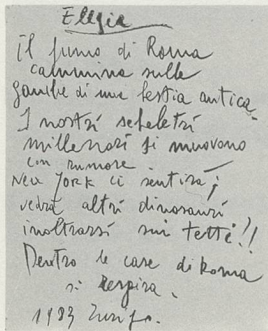 Elegia
il fumo di Roma
cammina sulle
gambe di una bestia antica.
I nostri scheletri
millenari si muovono
con rumore.
New York ci sentirà;
vedrà altri dinosauri
inoltrarsi sui tetti!!
Dentro le case di Roma
si Respira.
1983